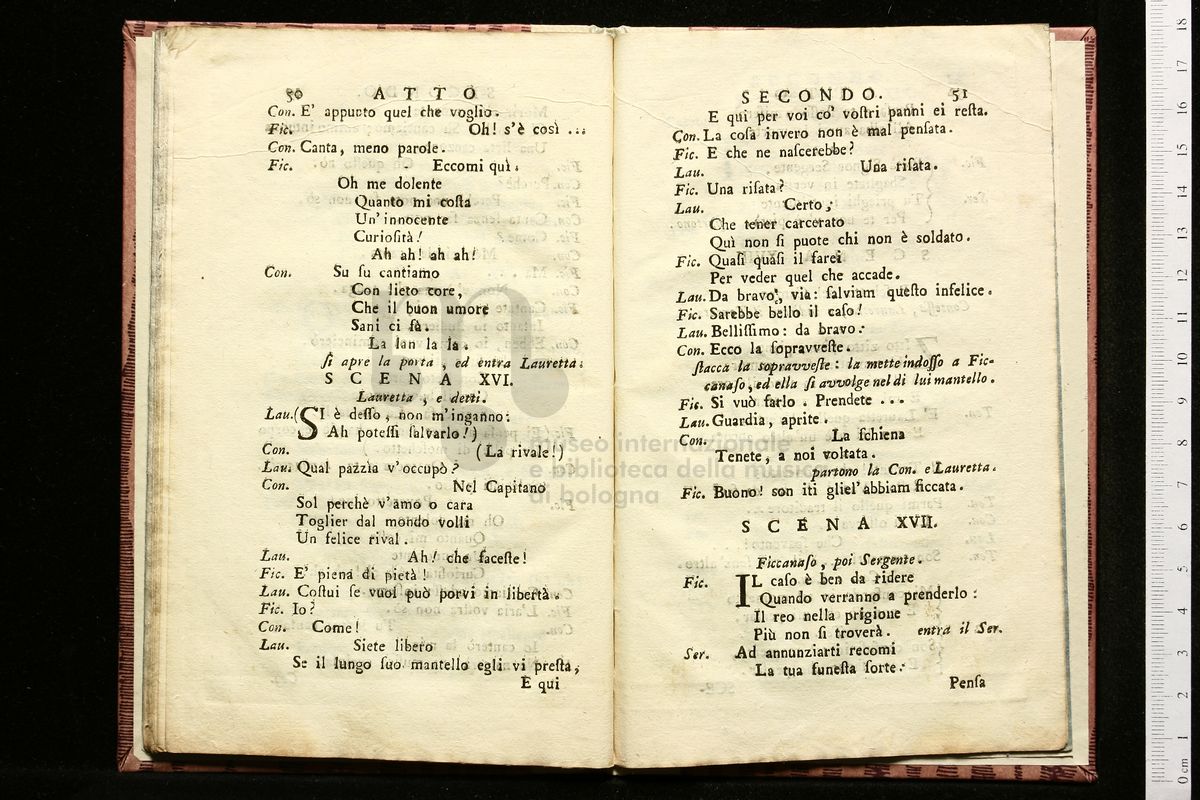 50 ATTO
Con. E' appunto quel che voglio.
Fic. Oh! s'è così ...
Con. Canta, meno parole.
Fic. Eccomi quì.
Oh me dolente
Quanto mi coſta
Un' innocente
Curioſità!
Ah ah! ah ah!
Con. Su ſu cantiamo
Con lieto core,
Che il buon umore
Sani ci fà.
La lan la la.
ſi apre la porta, ed entra Lauretta.
SCENA XVI.
Lauretta, e detti.
Lau. (SI è deſſo, non m'inganno:
Ah poteſſi ſalvarlo!)
Con. (La rivale!)
Lau. Qual pazzìa v'occupò?
Con. Nel Capitano
Sol perchè v'amo o cara
Toglier dal mondo volli
Un felice rival.
Lau. Ah! che faceſte!
Fic. E' piena di pietà!
Lau. Coſtui ſe vuol può porvi in libertà.
Fic. Io?
Con. Come!
Lau. Siete libero
Se il lungo ſuo mantello egli vi preſta,
E qui
SECONDO. 51
E qui per voi co' voſtri panni ei reſta.
Con. La coſa invero non è mal penſata.
Fic. E che ne naſcerebbe?
Lau. Una riſata.
Fic. Una riſata?
Lau. Certo;
Che tener carcerato
Quì non ſi puote chi non è soldato.
Fic. Quaſi quaſi il farei
Per veder quel che accade.
Lau. Da bravo, via: ſalviam queſto infelice.
Fic. Sarebbe bello il caſo!
Lau. Belliſſimo: da bravo:
Con. Ecco la ſopravveſte.
ſtacca la ſopravveſte: la mette indoſſo a Fic-
canaſo, ed ella ſi avvolge nel di lui mantello.
Fic. Si vuò farlo. Prendete ...
Lau. Guardia, aprite.
Con. La ſchiena
Tenete, a noi voltata.
partono la Con. e Lauretta.
Fic. Buono! son iti gliel' abbiam ficcata.
SCENA XVII.
Ficcanaſo, poi Sergente.
Fic. IL caſo è ben da ridere
Quando verranno a prenderlo:
Il reo nella prigione
Più non ſi troverà. entra il Ser.
Ser. Ad annunziarti recomi
La tua funeſta ſorte:
Penſa
museo internazionale
e biblioteca della musica
di bologna
0 cm 1 2 3 4 5 6 7 8 9 10 11 12 13 14 15 16 17 18